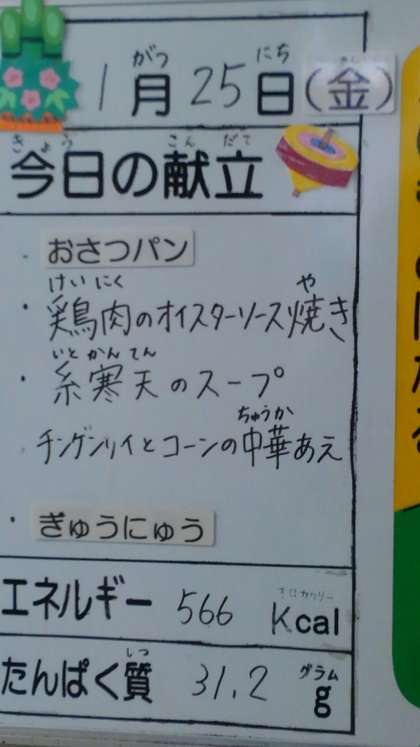 1月25日(金)
今日の献立
おさつパン
・鶏肉のオイスターソース焼き
・糸寒天のスープ
チンゲンサイとコーンの中華あえ
・ぎゅうにゅう
エネルギー 566 Kcal
たんぱく質 31.2 g